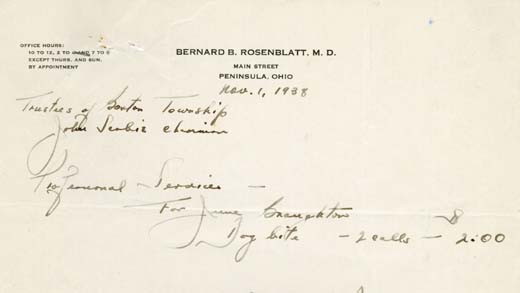 OFFICE HOURS:
10 TO 12, 2 TO 4 AND 7 TO 8
EXCEPT THURS. AND SUN.
BY APPOINTMENT
BERNARD B. ROSENBLATT, M. D.
MAIN STREET
PENINSULA, OHIO
Nov. 1, 1938
Trustees of Township
John chairman
Professional - Services -
For
Dog bite - 2 calls - 2.00